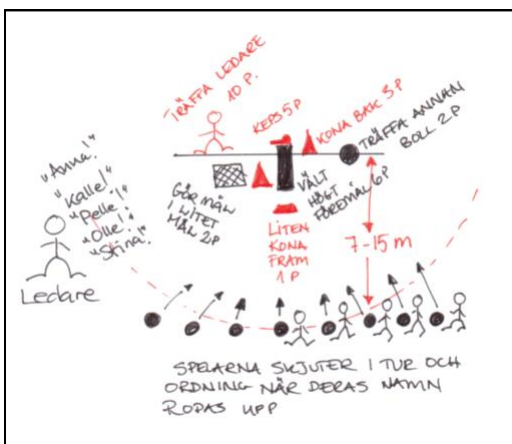 TRÄFFA LEDARE
10 P.
KEPS 5 P
KONA BAK 3 P
TRÄFFA ANNAN
BOLL 2 P
"Anna!"
"Kalle!"
"Pelle!"
"Olle!"
"Stina!"
Ledare
GÖR MÅL
I LITET
MÅL 2P
VÄLT
HÖGT
FÖREMÅL 6P
LITEN
KONA
FRAM
1 P
7-15 m
SPELARNA SKJUTER I TUR OCH
ORDNING NÄR DERAS NAMN
ROPAS UPP